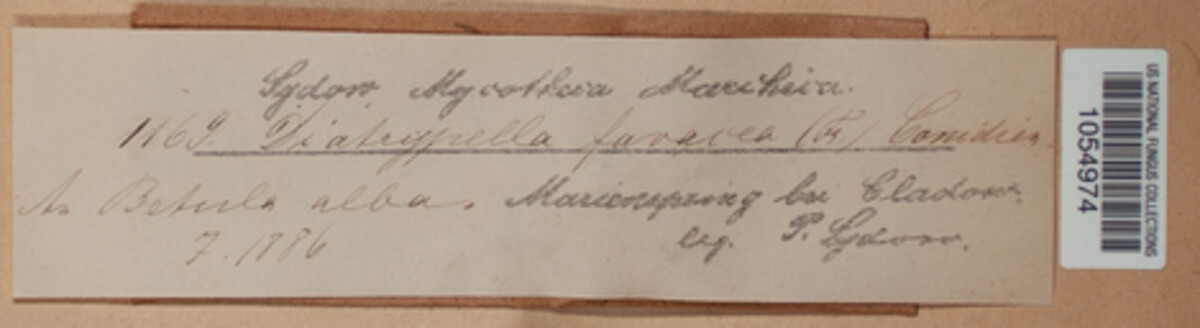 Sydow, Mycotheca Marchica.
1169. Diatrypella favacea (Fr.) Conidien.
An Betula alba. Marienspring bei Cladow.
7. 1886 leg. P. Sydow.
US NATIONAL FUNGUS COLLECTIONS
1054974